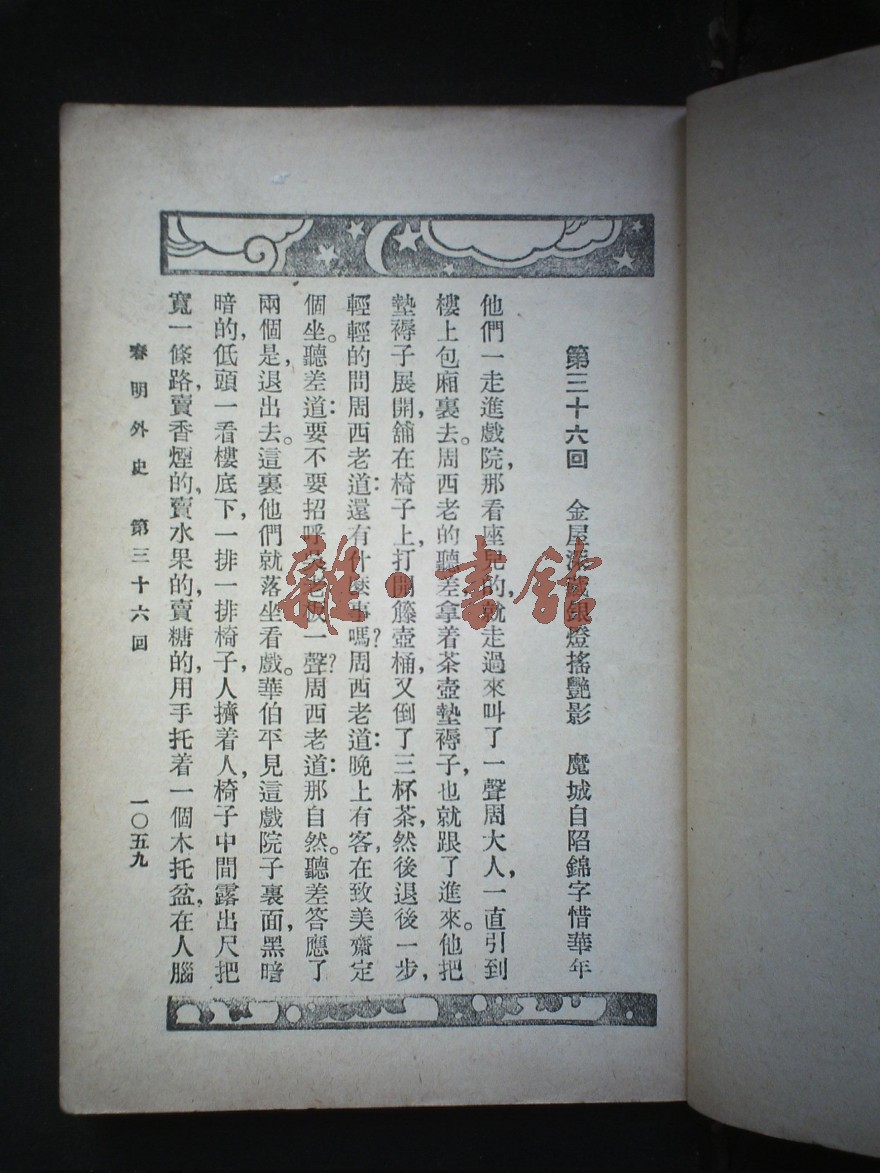 第三十六回　金屋　　銀燈搖艷影　魔城自陷錦字惜華年
他們一走進戲院，那看座兒的，就走過來叫了一聲周大人，一直引到
樓上包廂裏去。周西老的聽差拿着茶壺墊褥子，也就跟了進來。他把
墊褥子展開，舖在椅子上，打開籐壺桶，又倒了三杯茶，然後退後一步，
輕輕的問周西老道：還有什麼事嗎？周西老道：晚上有客，在致美齋定
個坐。聽差道：要不要招呼吳老板一聲？周西老道：那自然。聽差答應了
兩個是，退出去。這裏他們就落坐看戲。華伯平見這戲院子裏面，黑暗
暗的，低頭一看樓底下，一排一排椅子，人擠着人，椅子中間露出尺把
寬一條路，賣香煙的，賣水果的，賣糖的，用手托着一個木托盆，在人腦
春明外史　第三十六回　一〇五九
雜·書館